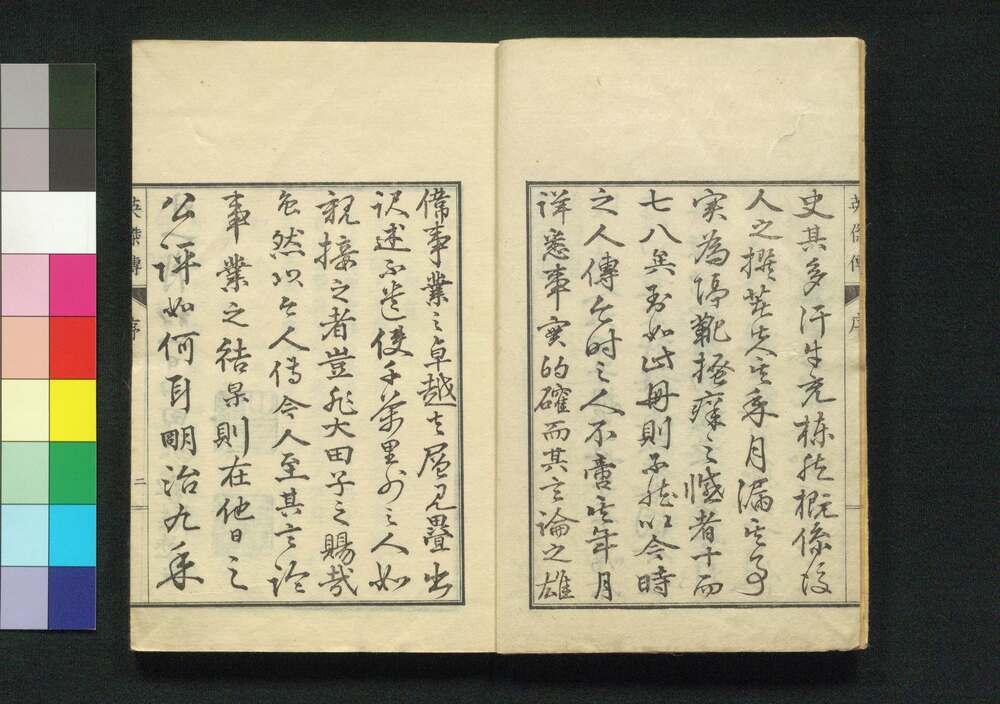 史其多汗牛充棟然概係後
人之撰茫失其年月漏其事
実為隔靴掻痒之憾者十而
七八矣至如此毋則不然以今時
之人傳今時之人不啻其年月
詳悉事實的確而其言論之雄
備事業之卓越其層見疊出
記述不遺使千萬里外之人如
親接之者豈非大田子之賜哉
然以今人傳今人至其言論
事業之結果則在他日之
公評如何耳明治九年
英傑傳
序
二
英傑傳
序